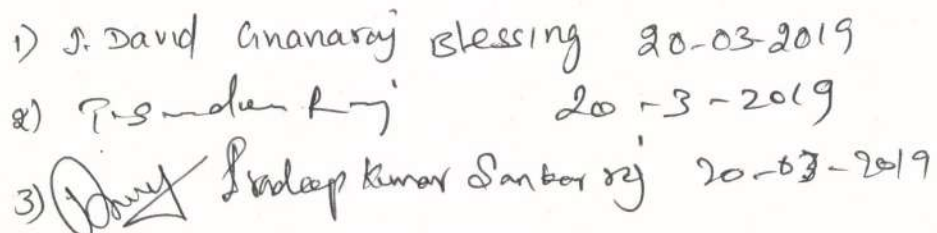 1) J. David Gnanaraj Blessing 20-03-2019
2) 20-3-2019
3) Pradeep Kumar Sankar raj 20-03-2019